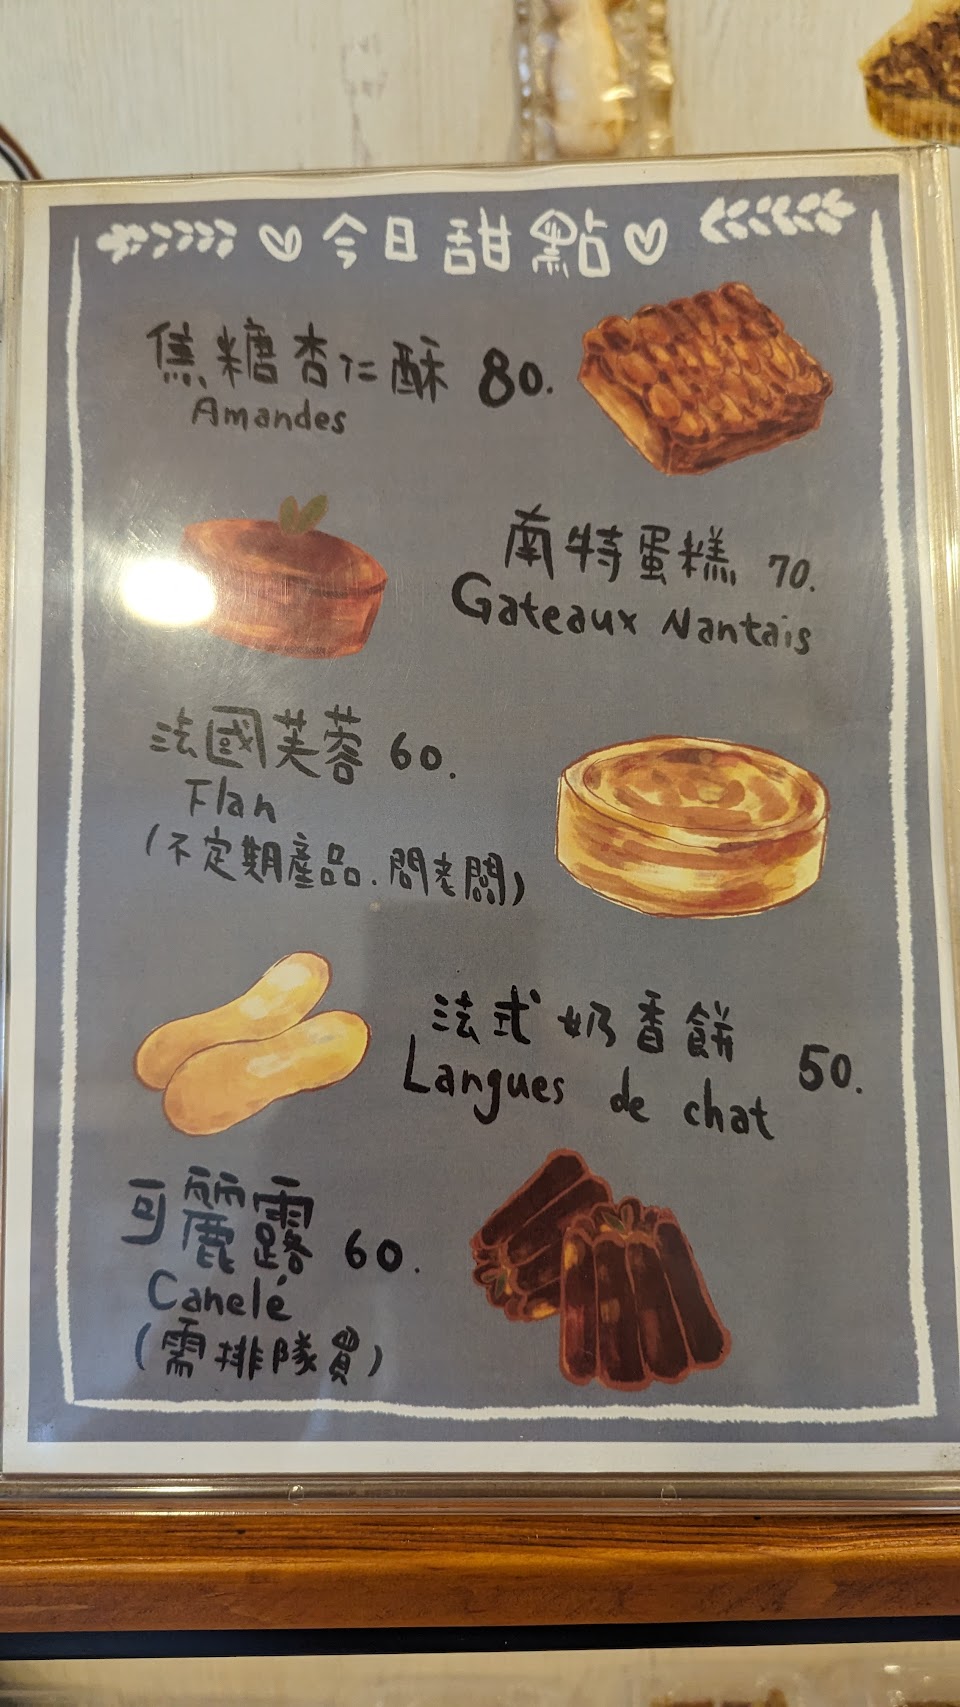 今日甜點
焦糖杏仁酥 80.
Amandes
南特蛋糕 70.
Gateaux Nantais
法國芙蓉 60.
Flan
(不定期產品.問老闆)
法式奶香餅 50.
Langues de chat
可麗露 60.
Canelé
(需排隊買)